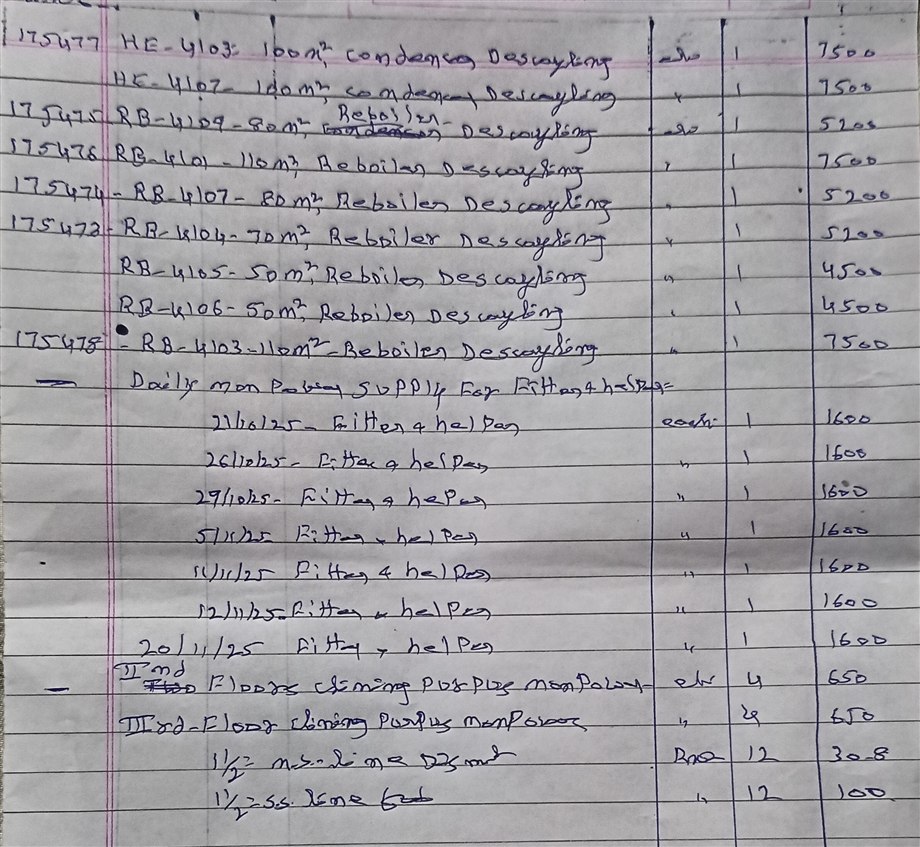 175477 HE-4103- 100m², condenser Descayling 1 7500
HE-4107- 100m², condenser Descayling " 1 7500
Reboiler-
175475 RB-4109-80m², Descayling 1 5200
175476 RB-4101-110m², Reboiler Descayling " 1 7500
175474- RB-4107-80m², Reboiler Descayling " 1 5200
175473- RB-4104-70m², Reboiler Descayling " 1 5200
RB-4105-50m², Reboiler Descayling " 1 4500
RB-4106-50m², Reboiler Descayling " 1 4500
175478 - RB-4103-110m²-Reboiler Descayling " 1 7500
— Daily man Power supply For Fitter & helper=
21/10/25- Fitter & helper each 1 1600
26/10/25- Fitter & helper " 1 1600
29/10/25- Fitter & heper " 1 1600
5/11/25 Fitter & helper " 1 1600
11/11/25 Fitter & helper " 1 1600
12/11/25- Fitter & helper " 1 1600
20/11/25 Fitter & helper " 1 1600
— IInd Floors clining purpus manPower- 4 650
IIIrd-Floor clining purpus manPower " 4 650
1½= m.s. line 12 308
1½= s.s. line " 12 100